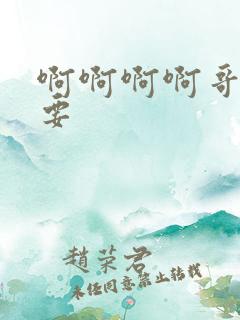 啊啊啊啊哥
要
趙榮君
未经同意禁止转载